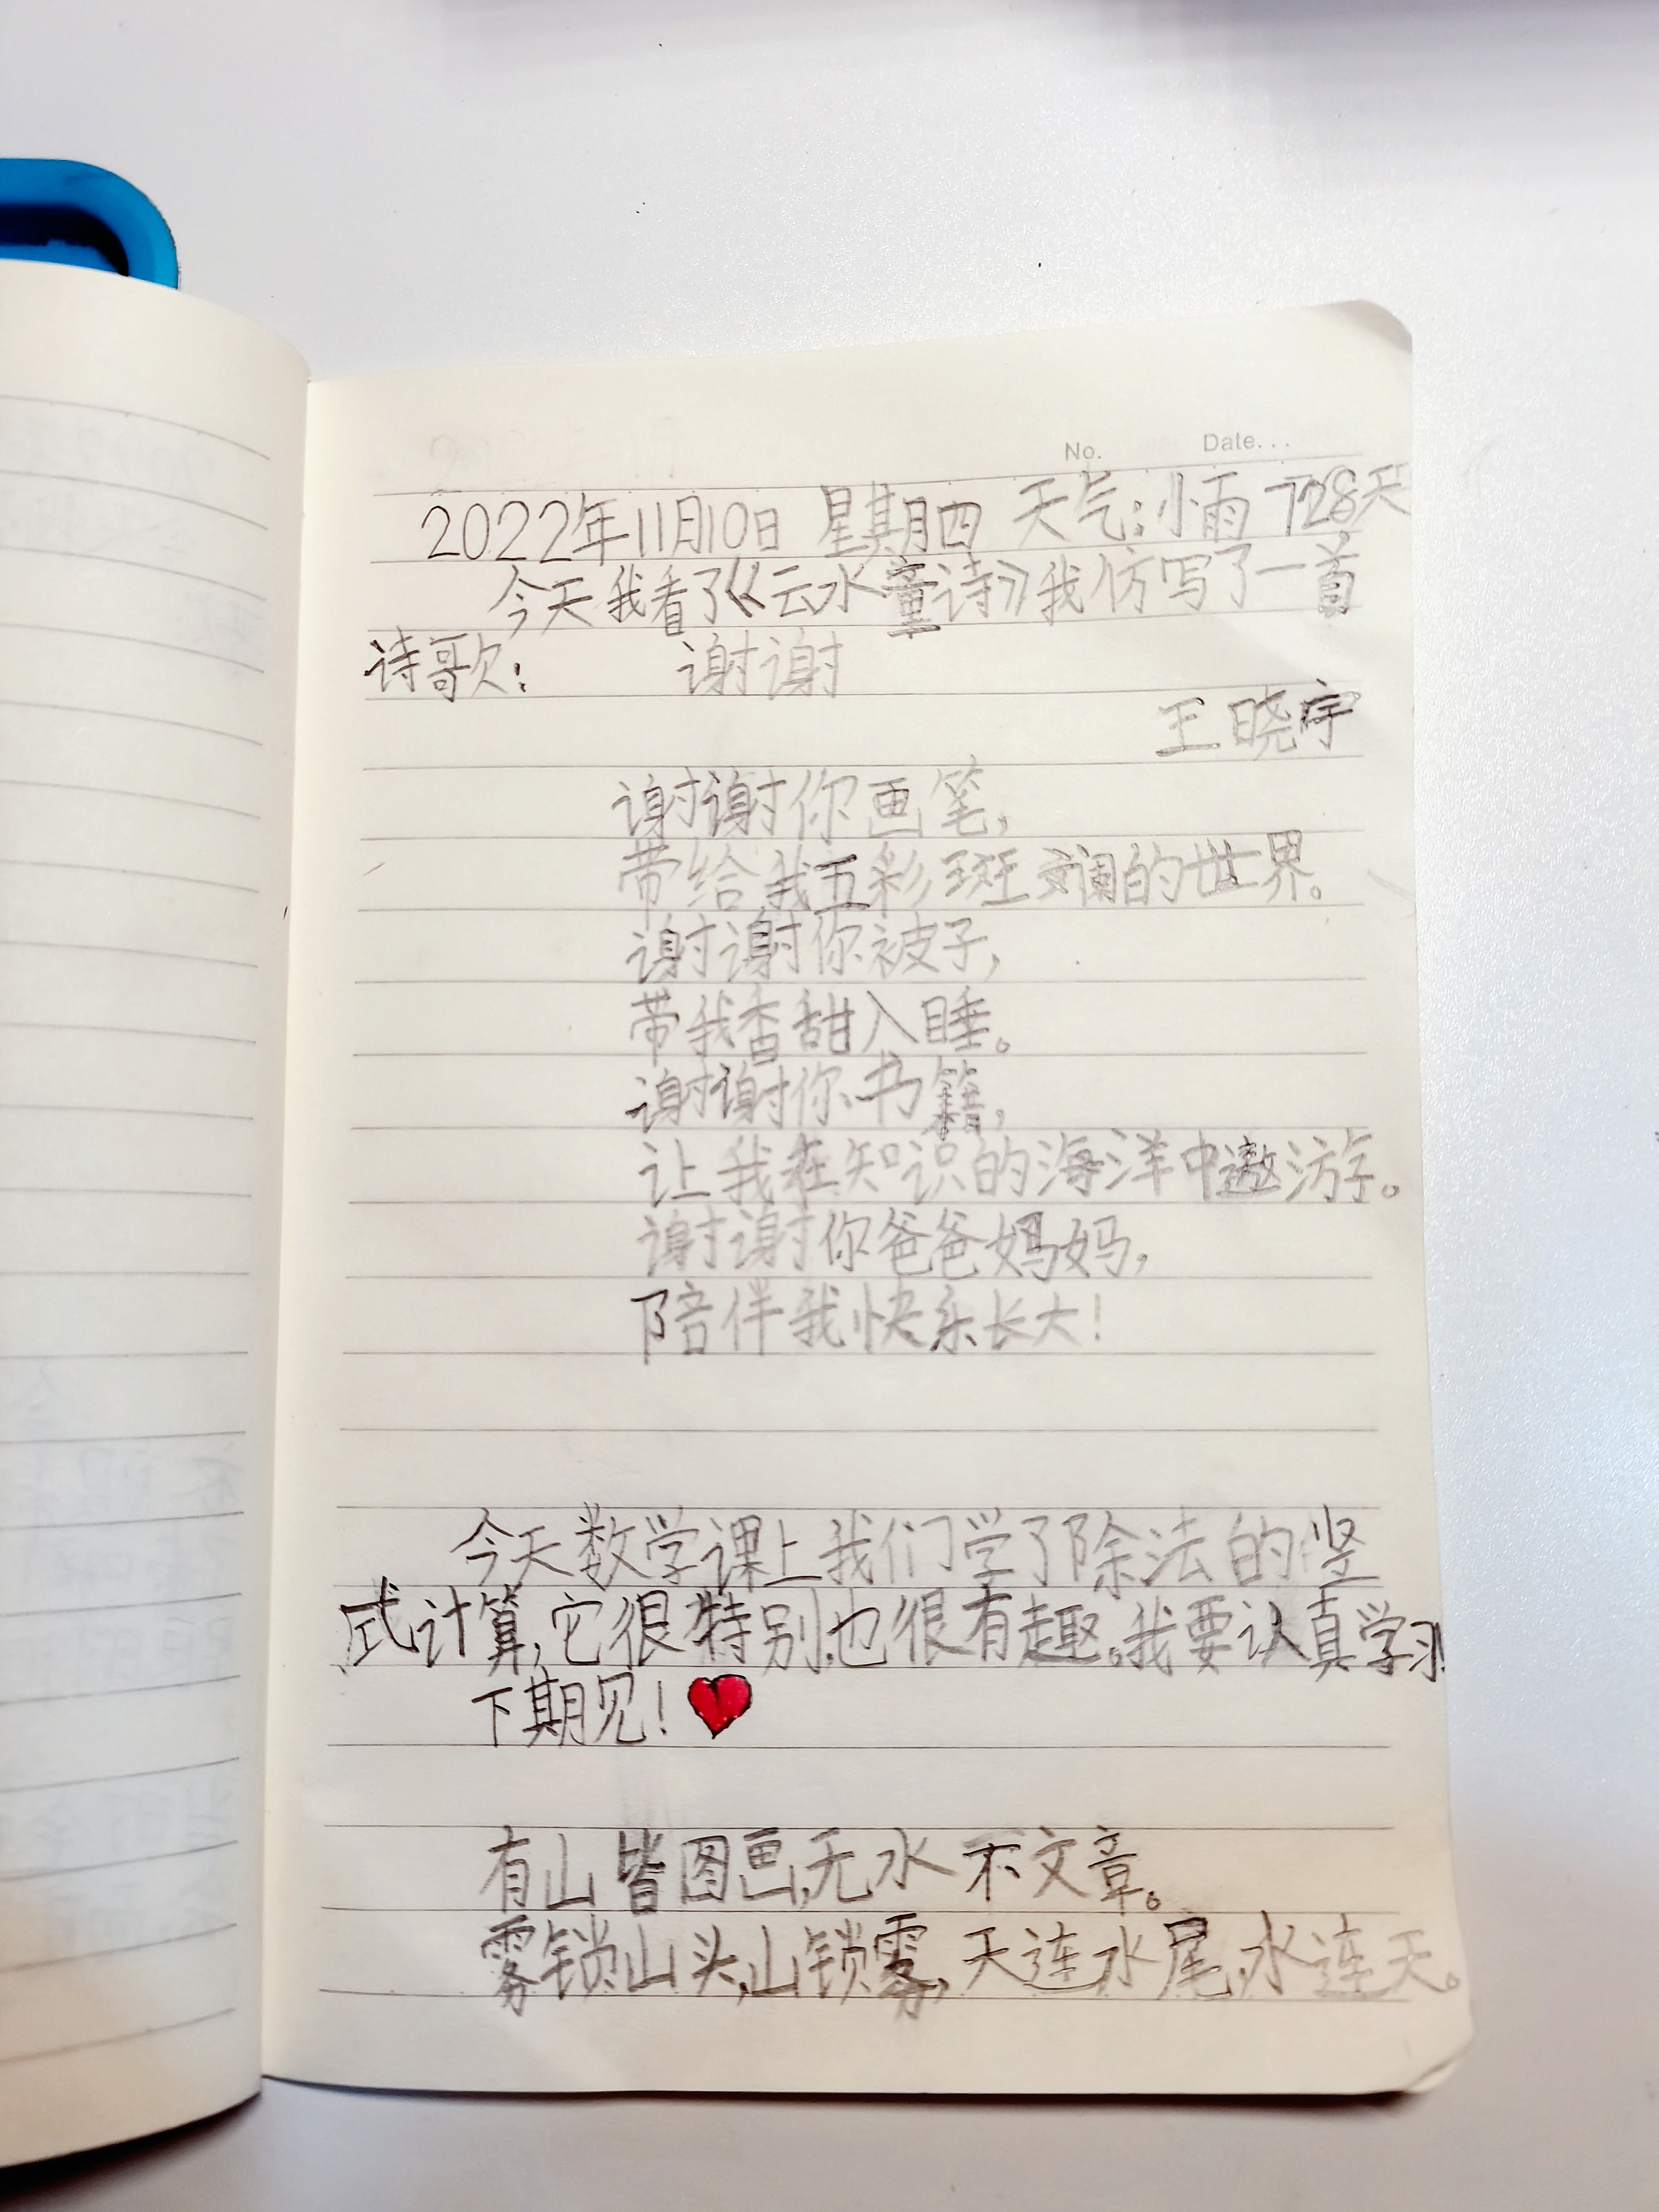 No. Date...
2022年11月10日 星期四 天气:小雨 728天
今天我看了《云水童诗》我仿写了一首
诗歌: 谢谢
王晓宇
谢谢你画笔,
带给我五彩斑斓的世界。
谢谢你被子,
带我香甜入睡。
谢谢你书籍,
让我在知识的海洋中遨游。
谢谢你爸爸妈妈,
陪伴我快乐长大!
今天数学课上我们学了除法的竖
式计算,它很特别,也很有趣。我要认真学习!
下期见!
有山皆图画,无水不文章。
雾锁山头,山锁雾,天连水尾,水连天。